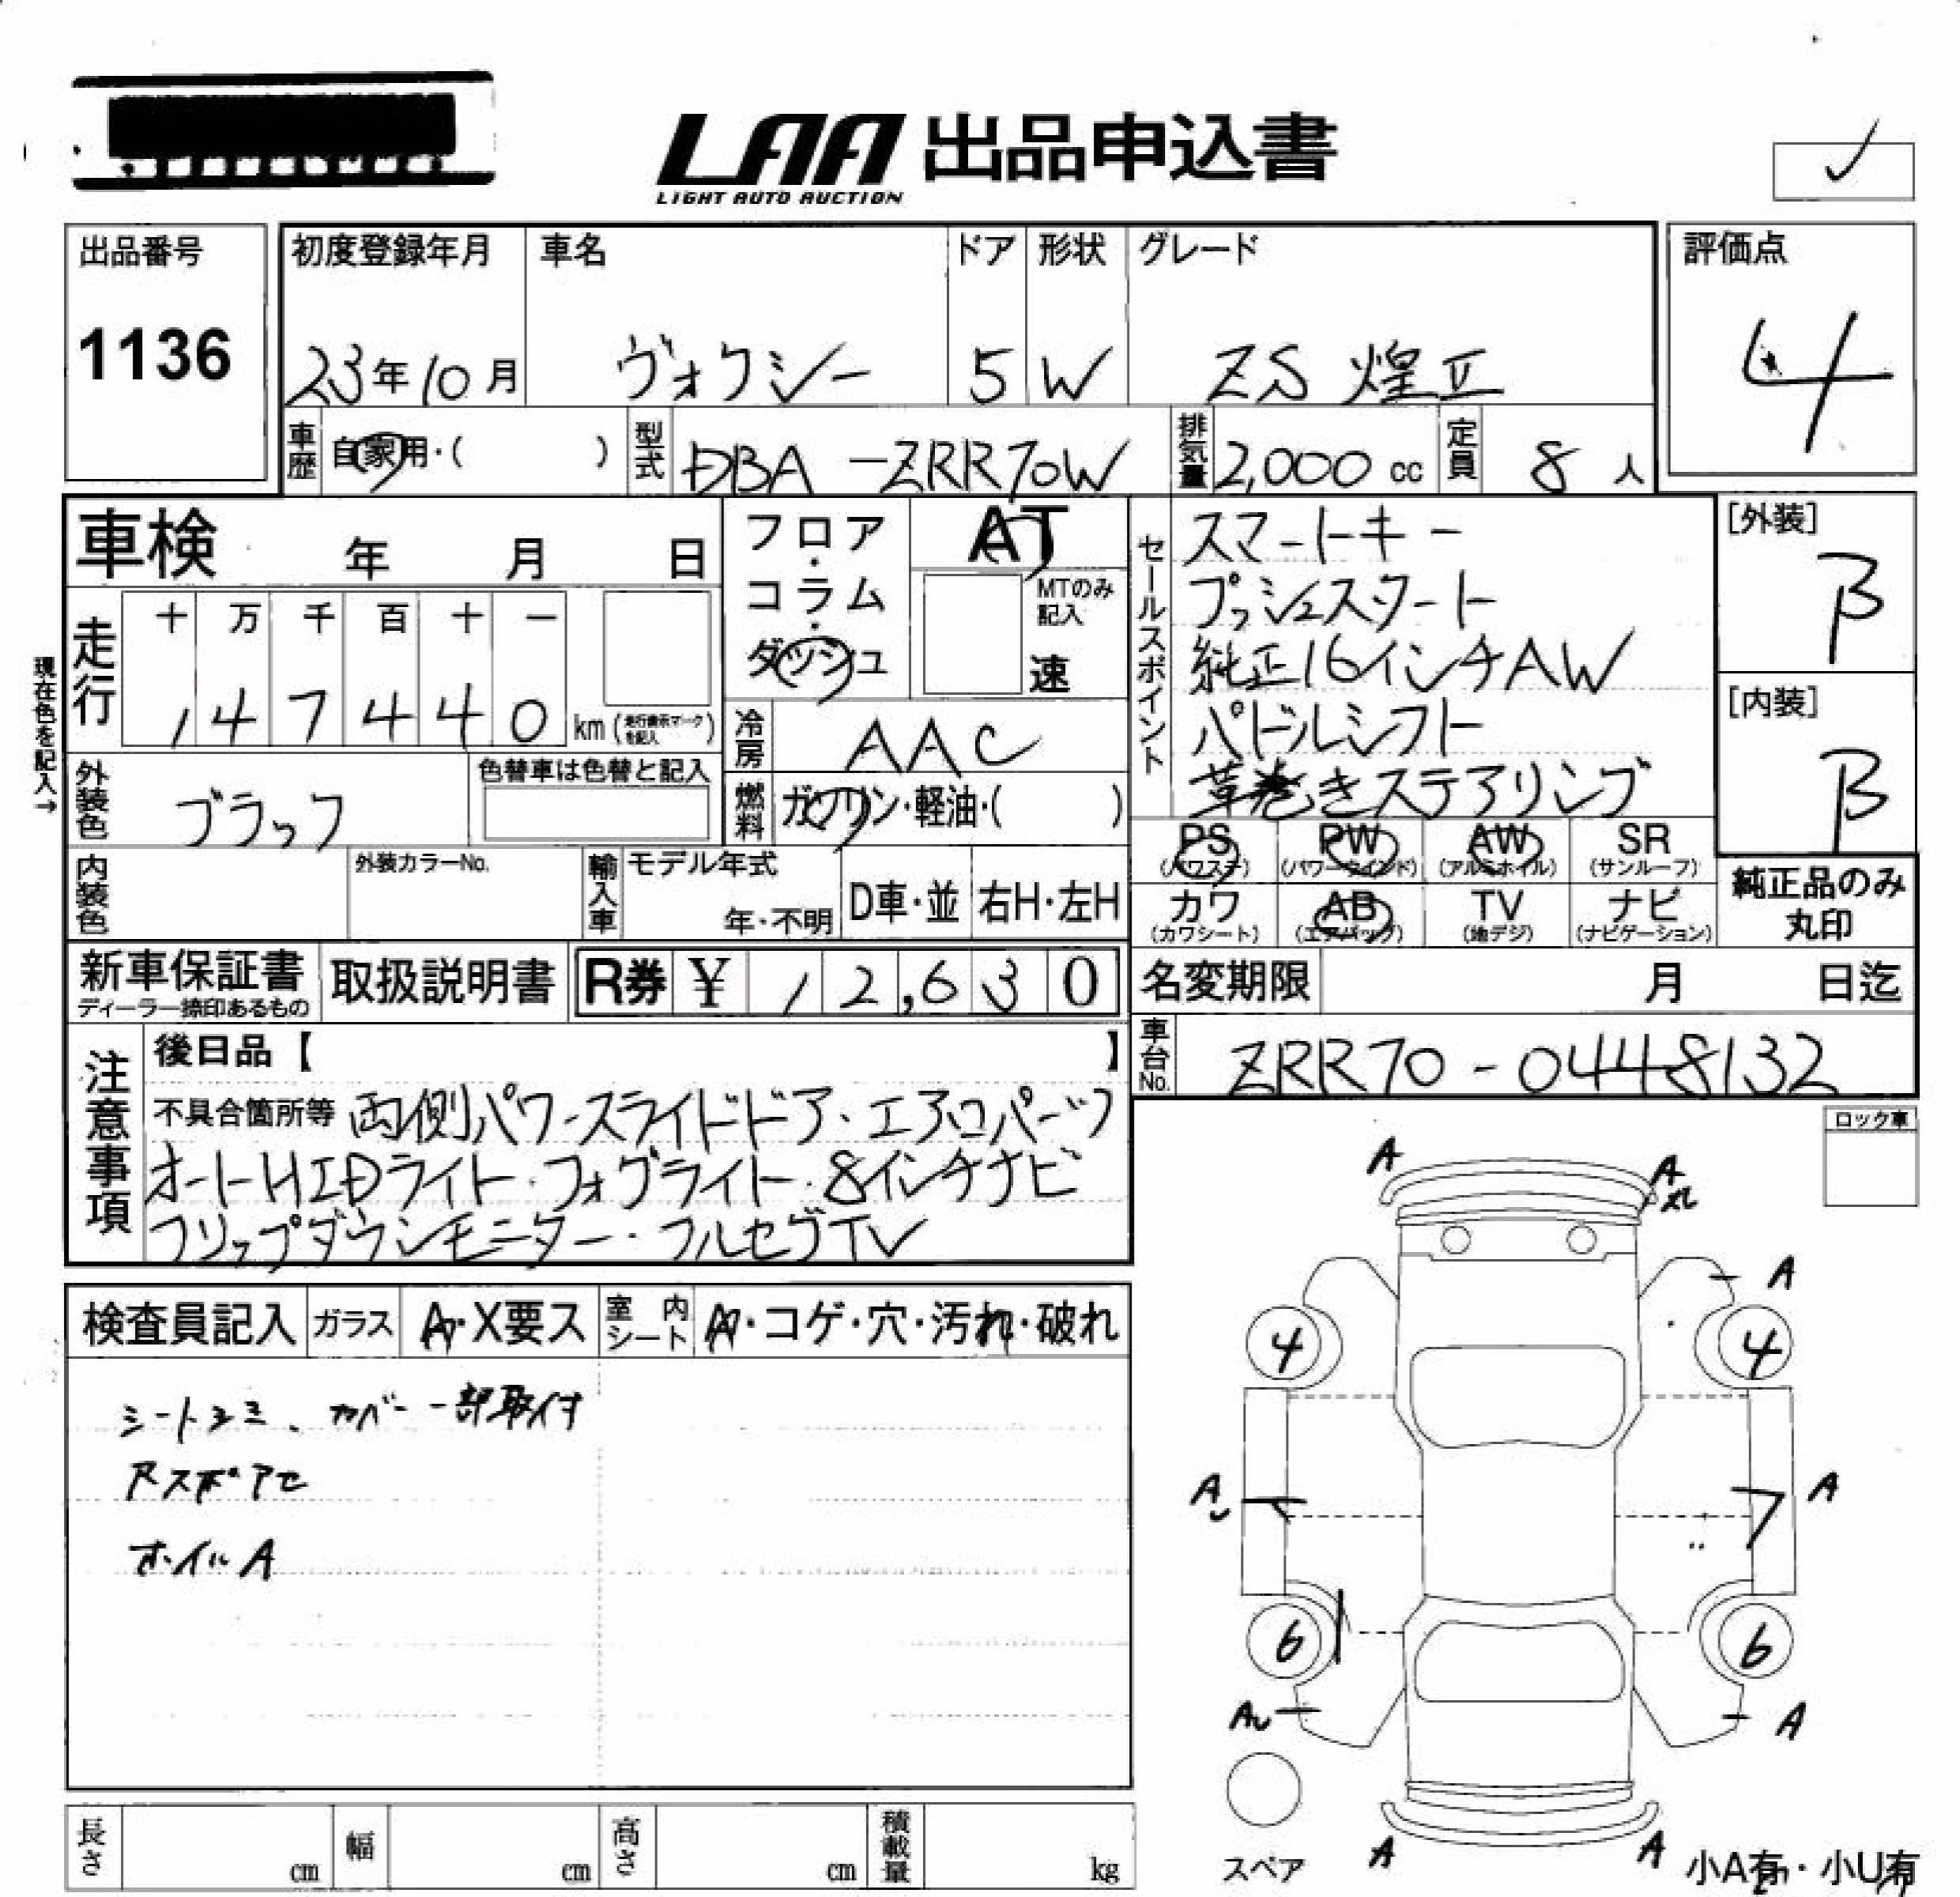 LAA 出品申込書
LIGHT AUTO AUCTION
出品番号
1136
初度登録年月
23年10月
車名
ヴォクシー
ドア
5
形状
W
グレード
ZS 煌Ⅱ
評価点
4
車歴 自家用・( )
型式 DBA-ZRR70W
排気量 2,000 cc
定員 8 人
車検 年 月 日
フロア・コラム・ダッシュ
AT
MTのみ記入
速
現在色を記入→
走行
十 万 千 百 十 一
1 4 7 4 4 0 km (走行表示マークを記入)
冷房 AAC
燃料 ガソリン・軽油・( )
外装色 ブラック
色替車は色替と記入
内装色
外装カラーNo.
輸入車
モデル年式
年・不明
D車・並
右H・左H
セールスポイント
スマートキー
プッシュスタート
純正16インチAW
パドルシフト
革巻きステアリング
[外装]
B
[内装]
B
PS (パワステ)
PW (パワーウインド)
AW (アルミホイル)
SR (サンルーフ)
カワ (カワシート)
AB (エアバッグ)
TV (地デジ)
ナビ (ナビゲーション)
純正品のみ
丸印
新車保証書
ディーラー捺印あるもの
取扱説明書
R券 ¥ 12,630
名変期限 月 日迄
車台No. ZRR70-0448132
注意事項
後日品【 】
不具合箇所等 両側パワースライドドア・エアロパーツ
オートHIDライト・フォグライト・8インチナビ
フリップダウンモニター・フルセグTV
ロック車
検査員記入
ガラス A・X要ス
室内シート A・コゲ・穴・汚れ・破れ
シートシミ、カバー一部取付
アセ
ホイルA
A
A
A
4
4
A
A
6
6
A
A
A
A
スペア
小A有・小U有
長さ cm
幅 cm
高さ cm
積載量 kg